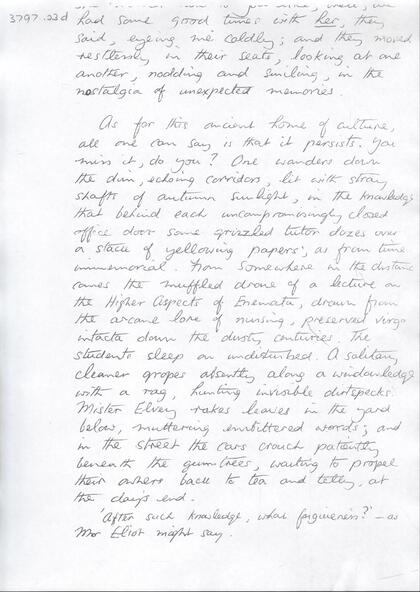 3797.23d
had some good times with her, they
said, eyeing me coldly; and they moved
restlessly in their seats, looking at one
another, nodding and smiling, in the
nostalgia of unexpected memories.
As for this ancient home of culture,
all one can say is that it persists. You
miss it, do you? One wanders down
the dim, echoing corridors, lit with stray
shafts of autumn sunlight, in the knowledge
that behind each uncompromisingly closed
office door some grizzled tutor dozes over
a stack of yellowing papers, as from time
immemorial. From somewhere in the distance
comes the muffled drone of a lecture on
the Higher Aspects of Enemata, drawn from
the arcane lore of nursing, preserved virgo
intacta down the dusty centuries. The
students sleep on undisturbed. A solitary
cleaner gropes absently along a windowledge
with a rag, hunting invisible dirtspecks.
Mister Elvey rakes leaves in the yard
below, muttering embittered words; and
in the street the cars crouch patiently
beneath the gumtrees, waiting to propel
their owners back to tea and telly, at
the day's end.
'After such knowledge, what forgiveness?' – as
Mr Eliot might say.